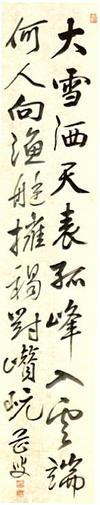 大雪洒天表孤峰入雲端
何人向漁艇擁褐對巑岏